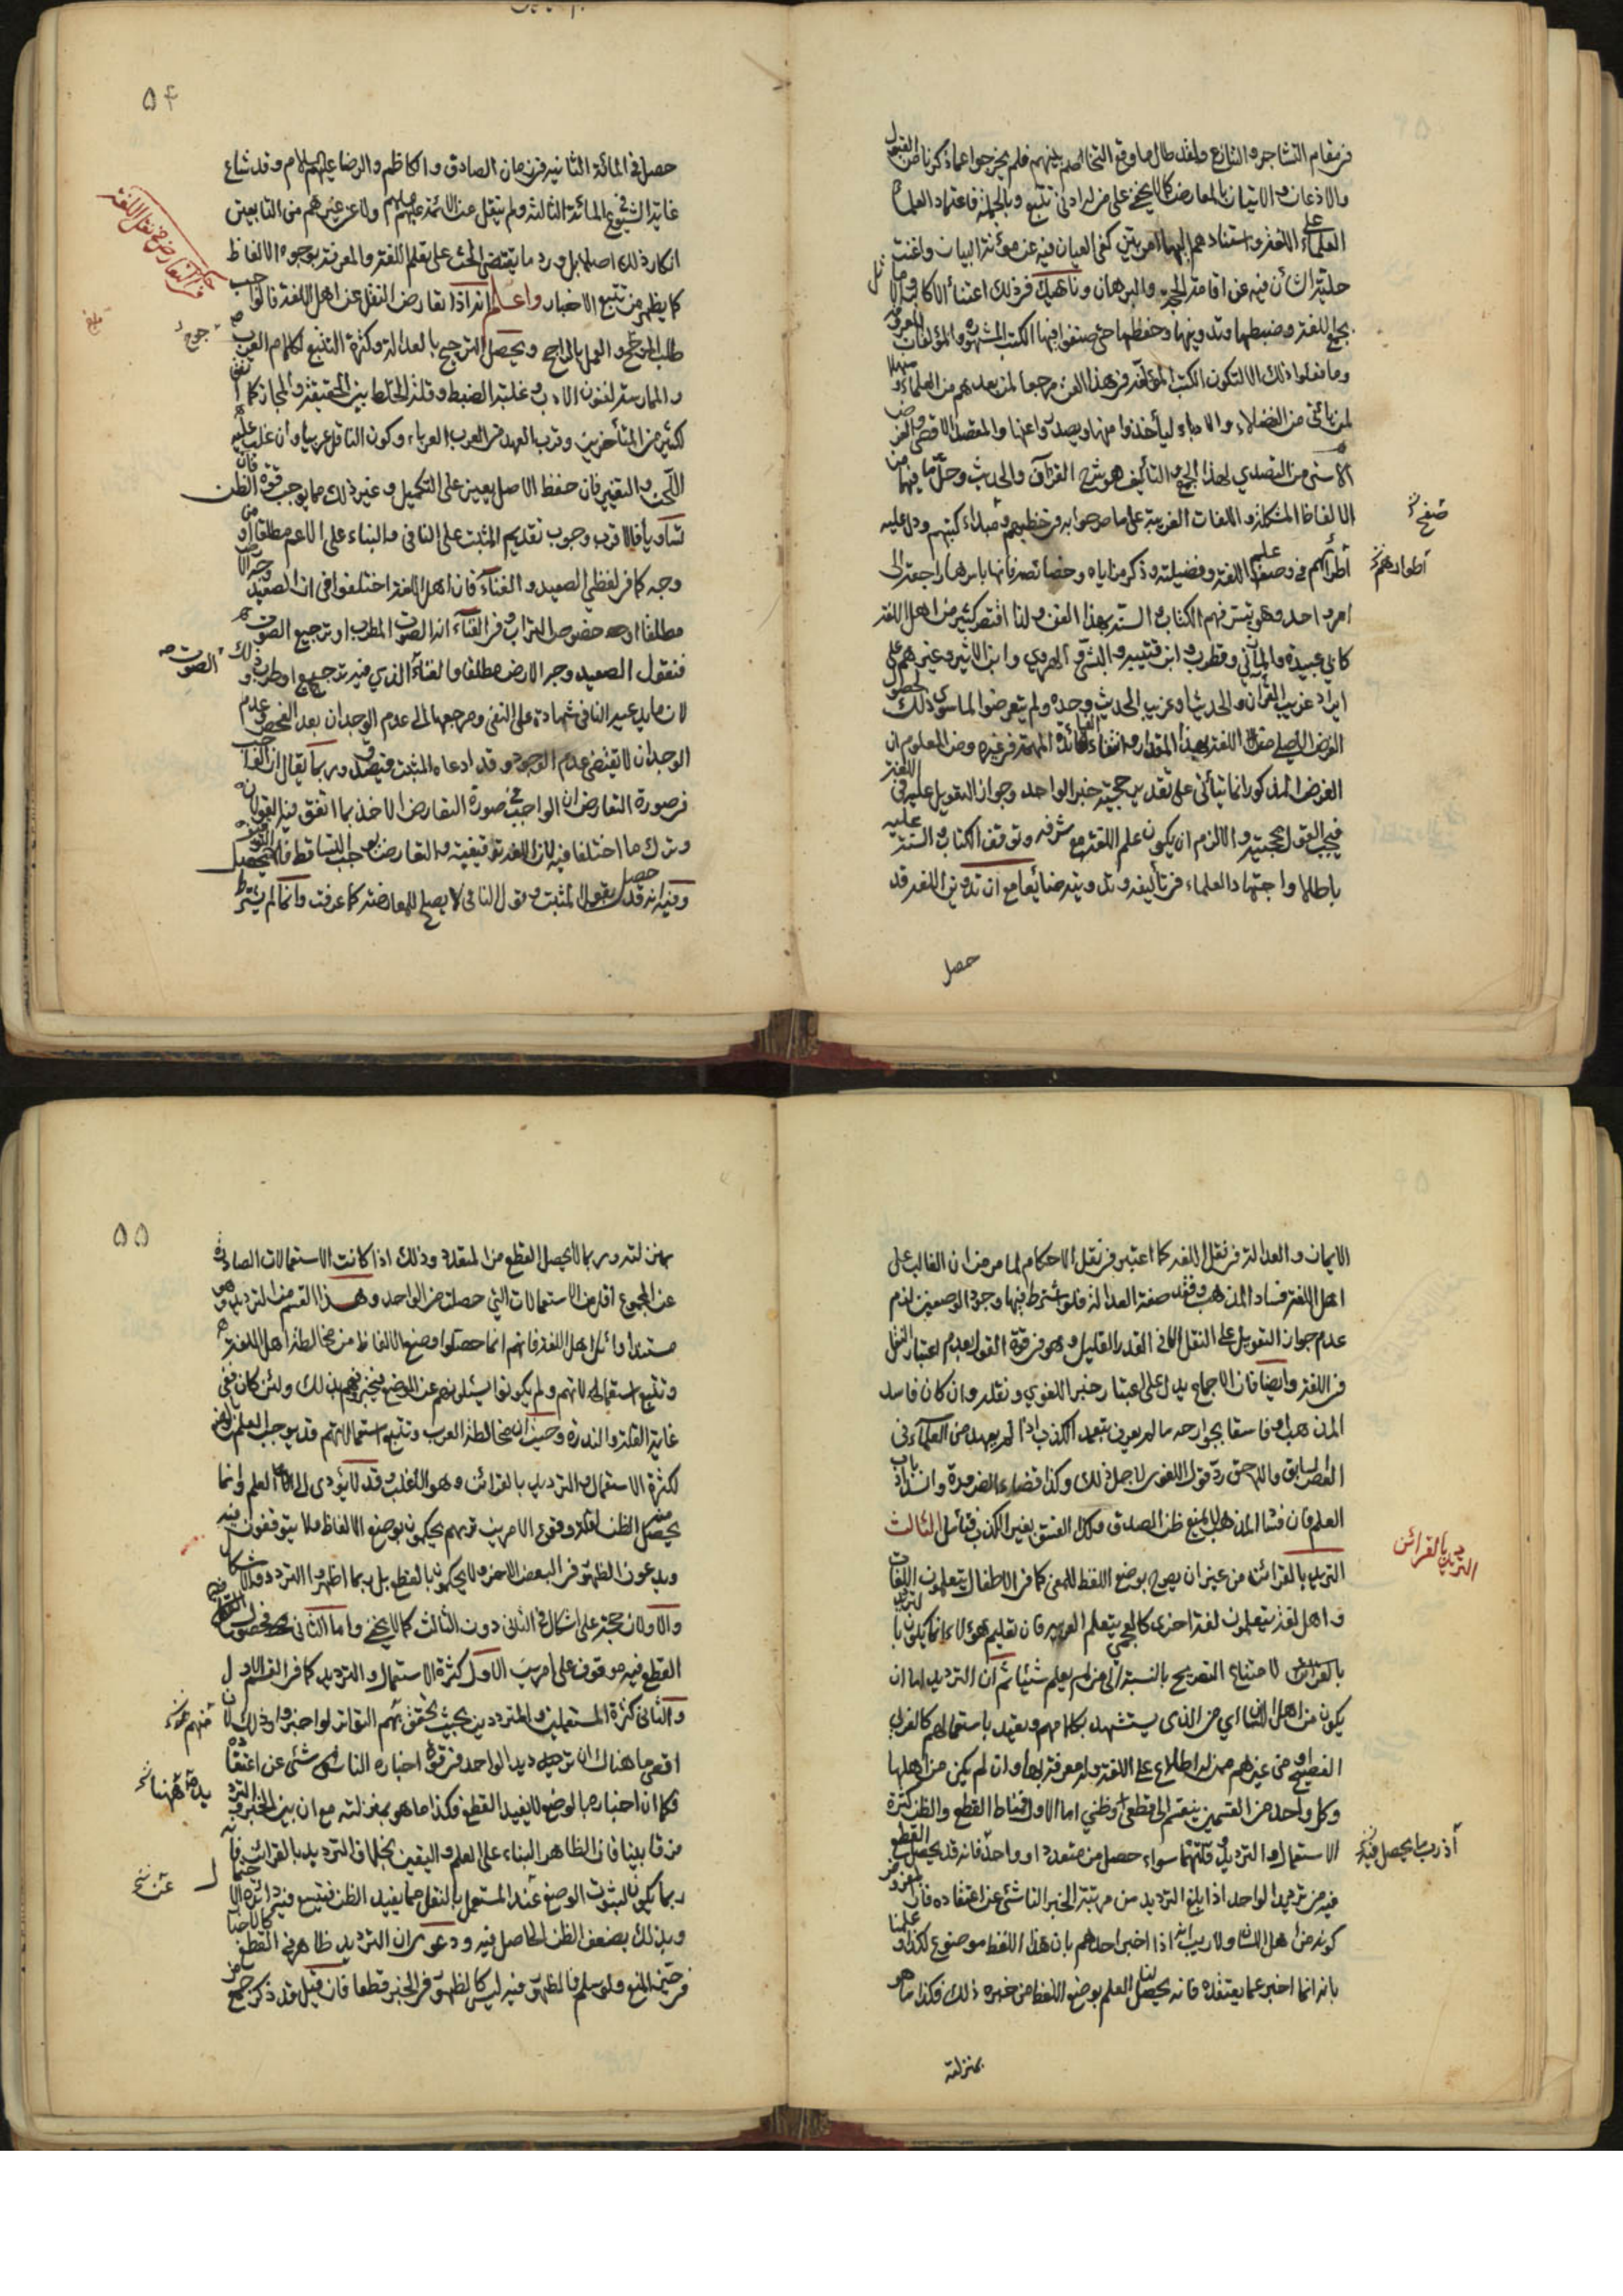 في مقام التشاجر والتنازع ولقد طال ما وقع التخاصم بينهم فلم يخرجوا عما ذكرنا من القبول
والاذعان والاتيان بالمعارض كما لا يخفى على من له ادنى تتبع وبالجملة فاعتماد العلماء
العلماء على اللغة واستنادهم اليها امر بيّن كفى العيان فيه عن مؤنة البيان واغنت
حلية الشأن فيه عن اقامة الحجة والبرهان وناهيك في ذلك اعتناء الاكابر والا
بجمع اللغة وضبطها وتدوينها وحفظها حتى صنفوا فيها الكتب المشهورة والمؤلفات المعروفة
وما فعلوا ذلك الا لتكون الكتب المؤلفة في هذا الفن مرجعا لمن بعدهم من العلماء ومنهلا
لمن يأتي من الفضلاء والادباء ليأخذوا منها ويصدروا عنها والمقصد الاقصى والغرض
الاسنى من التصدي لهذا الجمع والتأليف هو شرح القرآن والحديث وحل ما فيهما من
الالفاظ المشكلة واللغات الغريبة على ما صرحوا به في خطبهم وصدر كتبهم ودل عليه
اطرائهم في وصف علم اللغة وفضيلته وذكر مزاياه وخصائصه فانها باسرها راجعة الى
امر واحد وهو تيسر فهم الكتاب والسنة بهذا الفن ولذا اقتصر كثير من اهل اللغة
كابي عبيدة والمازني وقطرب وابن قتيبة والهروي وابن الاثير وغيرهم على
ايراد غريب القرآن والحديث او غريب الحديث وحده ولم يتعرضوا لما سوى ذلك لحصول
الغرض الاصلي من اللغة بهذا المقدار وانتفاء الفائدة المهمة في غيره ومن المعلوم ان
الغرض المذكور انما يتأتى على تقدير حجية خبر الواحد وجواز التعويل عليه في اللغة
فيجب القول بحجيته والا لزم ان يكون علم اللغة مع شرفه وتوقف الكتاب والسنة عليه
باطلا واجتهاد العلماء في تأليفه وتدوينه ضائعا مع ان تدوين اللغة قد
حصل
صفح
اطوارهم
٥٤
حصل في المائة الثانية في زمان الصادق والكاظم والرضا عليهم السلام وقد شاع
غاية الشيوع في المائة الثالثة ولم ينقل عن الائمة عليهم السلام ولا عن غيرهم من التابعين
انكار ذلك اصلا بل ورد ما يقتضي الحث على تعلم اللغة والمعرفة بوجوه الالفاظ
كما يظهر من تتبع الاخبار واعلم انه اذا تعارض النقل عن اهل اللغة فالواجب
طلب المرجح والعمل بالراجح ويحصل الترجيح بالعدالة وكثرة التتبع لكلام العرب
والممارسة لفنون الادب وغلبة الضبط وقلة الخلط بين الحقيقة والمجاز كما اتفق
لكثير من المتأخرين وقرب العهد من العرب العرباء وكون الناقل عربيا وان غلب عليه
اللحن والتغيير فان حفظ الاصل يعين على التكميل وغير ذلك مما يوجب قوة الظن فان
تساويا فالاقرب وجوب تقديم المثبت على النافي والبناء على الاعم مطلقا او من
وجه كما في لفظي الصعيد والغناء فان اهل اللغة اختلفوا في ان الصعيد وجه الارض
مطلقا او خصوص التراب وفي الغناء انه الصوت المطرب او ترجيع الصوت
فنقول الصعيد وجه الارض مطلقا والغناء الذي فيه ترجيع او طرب وذلك
لان ما يدعيه النافي شهادة على النفي ومرجعها الى عدم الوجدان بعد الفحص وعدم
الوجدان لا يقتضي عدم الوجود وقد ادعاه المثبت فيصدق وربما يقال ان الواجب
في صورة التعارض الاخذ بما اتفق فيه القولان
وترك ما اختلفا فيه لان اللغة توقيفية والتعارض يوجب التساقط فلا يحصل التوقيف
وفيه انه قد حصل بقول المثبت وقول النافي لا يصلح للمعارضة كما عرفت وانما لم يشترط
حكم التعارض في نقل اللغة
الصوت
الايمان والعدالة في نقل اللغة كما اعتبر في نقل الاحكام لما مر من ان الغالب على
اهل اللغة فساد المذهب وفقد صفة العدالة فلو شرط فيها وجود الوصفين لزم
عدم جواز التعويل على النقل الا في القدر القليل وهو في قوة القول بعدم اعتبار النقل
في اللغة وايضا فان الاجماع يدل على اعتبار خبر اللغوي ونقله وان كان فاسد
المذهب او فاسقا بجوارحه ما لم يعرف بتعمد الكذب اذا لم يعهد من العلماء في
العصر السابق واللاحق رد قول اللغوي لاجل ذلك وكذا قضاء الضرورة وانسداد باب
العلم فان فساد المذهب لا يمنع ظن الصدق وكذا الفسق بغير الكذب فتأمل الثالث
الترديد بالقرائن من غير ان يصرح بوضع اللفظ للمعنى كما في الاطفال يتعلمون اللغات
واهل لغة يتعلمون لغة اخرى كالعجمي يتعلم العربية فان تعليم هؤلاء انما يكون بالترديد
بالقرائن لامتناع التصريح بالنسبة الى من لم يعلم شيئا ثم ان الترديد اما ان
يكون من اهل اللسان اي من الذي يستشهد بكلامهم ويعتد باستعمالهم كالعربي
الفصيح او من غيرهم ممن له اطلاع على اللغة وله معرفة بها وان لم يكن من اهلها
وكل واحد من القسمين ينقسم الى قطعي وظني اما الاول فمناط القطع والظن كثرة
الاستعمال والترديد وقلتهما سواء حصل من متعدد او واحد فانه قد يحصل القطع
فيه من ترديد الواحد اذا بلغ الترديد من مرتبة الخبر الناشئ عن اعتقاده فان
كونه من اهل اللسان ولا ريب انه اذا اخبر احدهم بان هذا اللفظ موضوع لكذا وعلمنا
بانه انما اخبر عما يعتقده فانه يحصل لنا العلم بوضع اللفظ من خبره ذلك فكذا ما هو
بمنزلته
الترديد بالقرائن
٥٥
بمنزلته وربما لا يحصل القطع من المتعدد وذلك اذا كانت الاستعمالات الصادرة
عن المجموع اقل من الاستعمالات التي حصلت من الواحد وهذا القسم من الترديد وهو
مستند اوائل اهل اللغة فانهم انما حصلوا وضع الالفاظ من مخالطة اهل اللغة
وتتبع استعمالاتهم ولم يكونوا يسئلونهم عن الوضع فيخبرونهم بذلك ولئن كان ففي
غاية القلة والندرة وحيث ان مخالطة العرب وتتبع استعمالاتهم قد يوجب العلم
لكثرة الاستعمال والترديد بالقرائن وهو الاغلب وقد لا يؤدى الى العلم وانما
يحصل منه الظن لقلة وقوع الامرين تريهم يحكمون بوضع الالفاظ ولا يتوقفون فيه
ويدعون الظهور في البعض الاخر ولا يحكمون بالقطع بل ربما اظهروا التردد والاشكال
والاولان حجة على اشكال في الثاني دون الثالث كما لا يخفى واما الثاني فحصول
القطع فيه موقوف على امرين الاول كثرة الاستعمال والترديد كما في القسم الاول
والثاني كثرة المستعملين والمترددين بحيث يتحقق بهم التواتر لو اخبروا وذلك لان
اقصى ما هناك ان ترديد الواحد في قوة اخباره الناشئ عن اعتقاده
فكما ان اخباره بالوضع لا يفيد القطع فكذا ما هو بمنزلته مع ان بين الخبر والترديد
فرقا بينا فان الظاهر البناء على العلم واليقين بخلاف الترديد بالقرائن فانه
ربما يكون لثبوت الوضع عند المستعمل بالنقل مما يفيد الظن فيتسع فيه دائرة الاحتمال
وبذلك يضعف الظن الحاصل فيه ودعوى ان الترديد ظاهر في القطع كالاخبار
في حيز المنع ولو سلم فالظهور فيه ليس كالظهور في الخبر قطعا فان قيل قد ذكر جمع